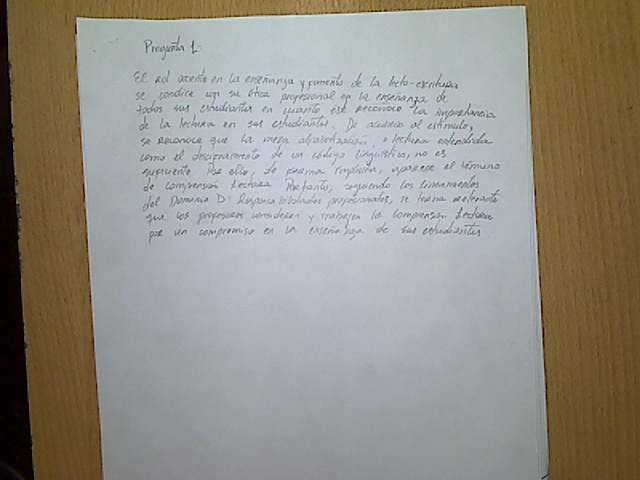 Pregunta 1:
El rol docente en la enseñanza y fomento de la lecto-escritura
se condice con su ética profesional en la enseñanza de
todos sus estudiantes en cuanto este reconoce la importancia
de la lectura en sus estudiantes. De acuerdo al estímulo,
se reconoce que la mera alfabetización, o lectura entendida
como el desciframiento de un código lingüístico, no es
suficiente. Por ello, de forma implícita, aparece el término
de comprensión lectora. Por tanto, siguiendo los lineamientos
del Dominio D: Responsabilidades profesionales, se torna relevante
que los profesores consideren y trabajen la comprensión lectora
por un compromiso en la enseñanza de sus estudiantes